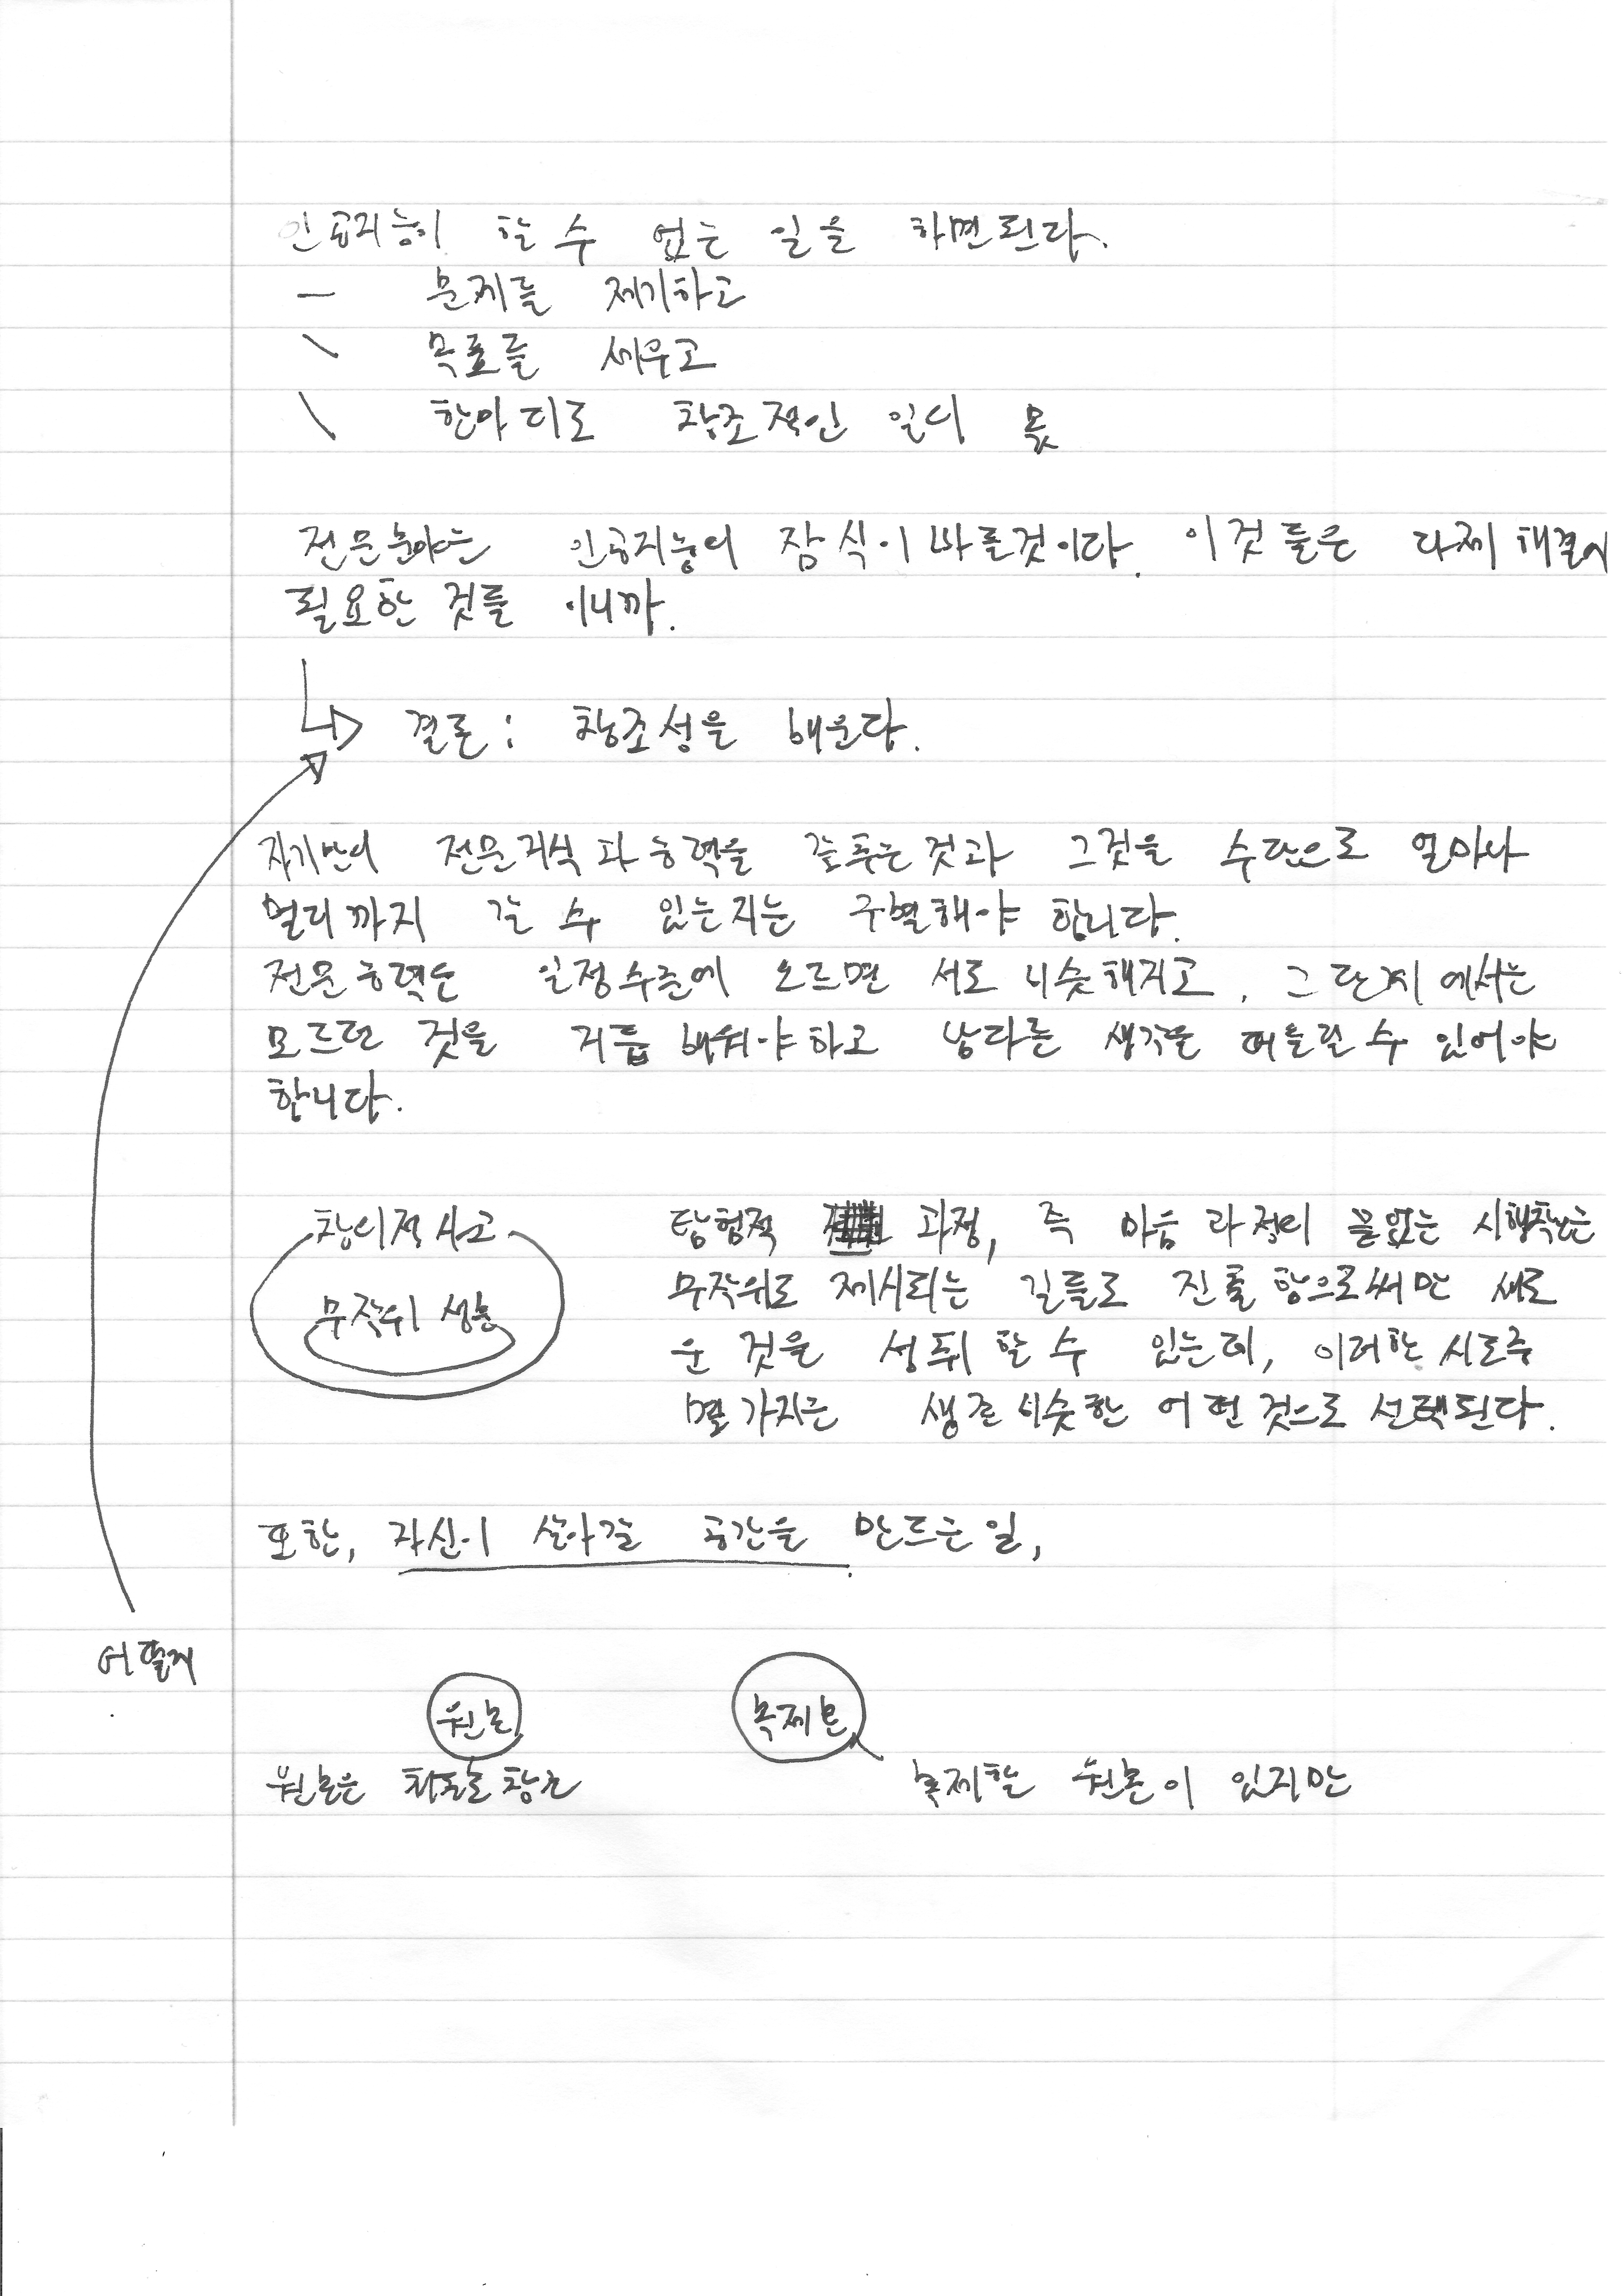 인공지능이 할 수 없는 일을 하면된다.
— 문제를 제기하고
\ 목표를 세우고
\ 한마디로 창조적인 일의 몫
전문분야는 인공지능의 잠식이 빠를것이다. 이것들은 과제 해결에
필요한 것들 이니까.
결론 : 창조성을 배운다.
자기만의 전문지식과 능력을 갖추는것과 그것을 수단으로 얼마나
멀리까지 갈 수 있는지는 구별해야 합니다.
전문능력은 일정수준에 오르면 서로 비슷해지고, 그 단계에서는
모르던 것을 거듭 배워야하고 남다른 생각을 떠올릴 수 있어야
합니다.
창의적 사고
무작위 생성
탐험적 과정, 즉 마음 과정의 끝없는 시행착오는
무작위로 제시되는 길들로 진출함으로써만 새로
운 것을 성취 할 수 있는데, 이러한 시도중
몇 가지는 생존 비슷한 어떤 것으로 선택된다.
또한, 자신이 살아갈 공간을 만드는 일,
어떻게
원본
복제본
원본은 최초로 창조
복제할 원본이 있지만